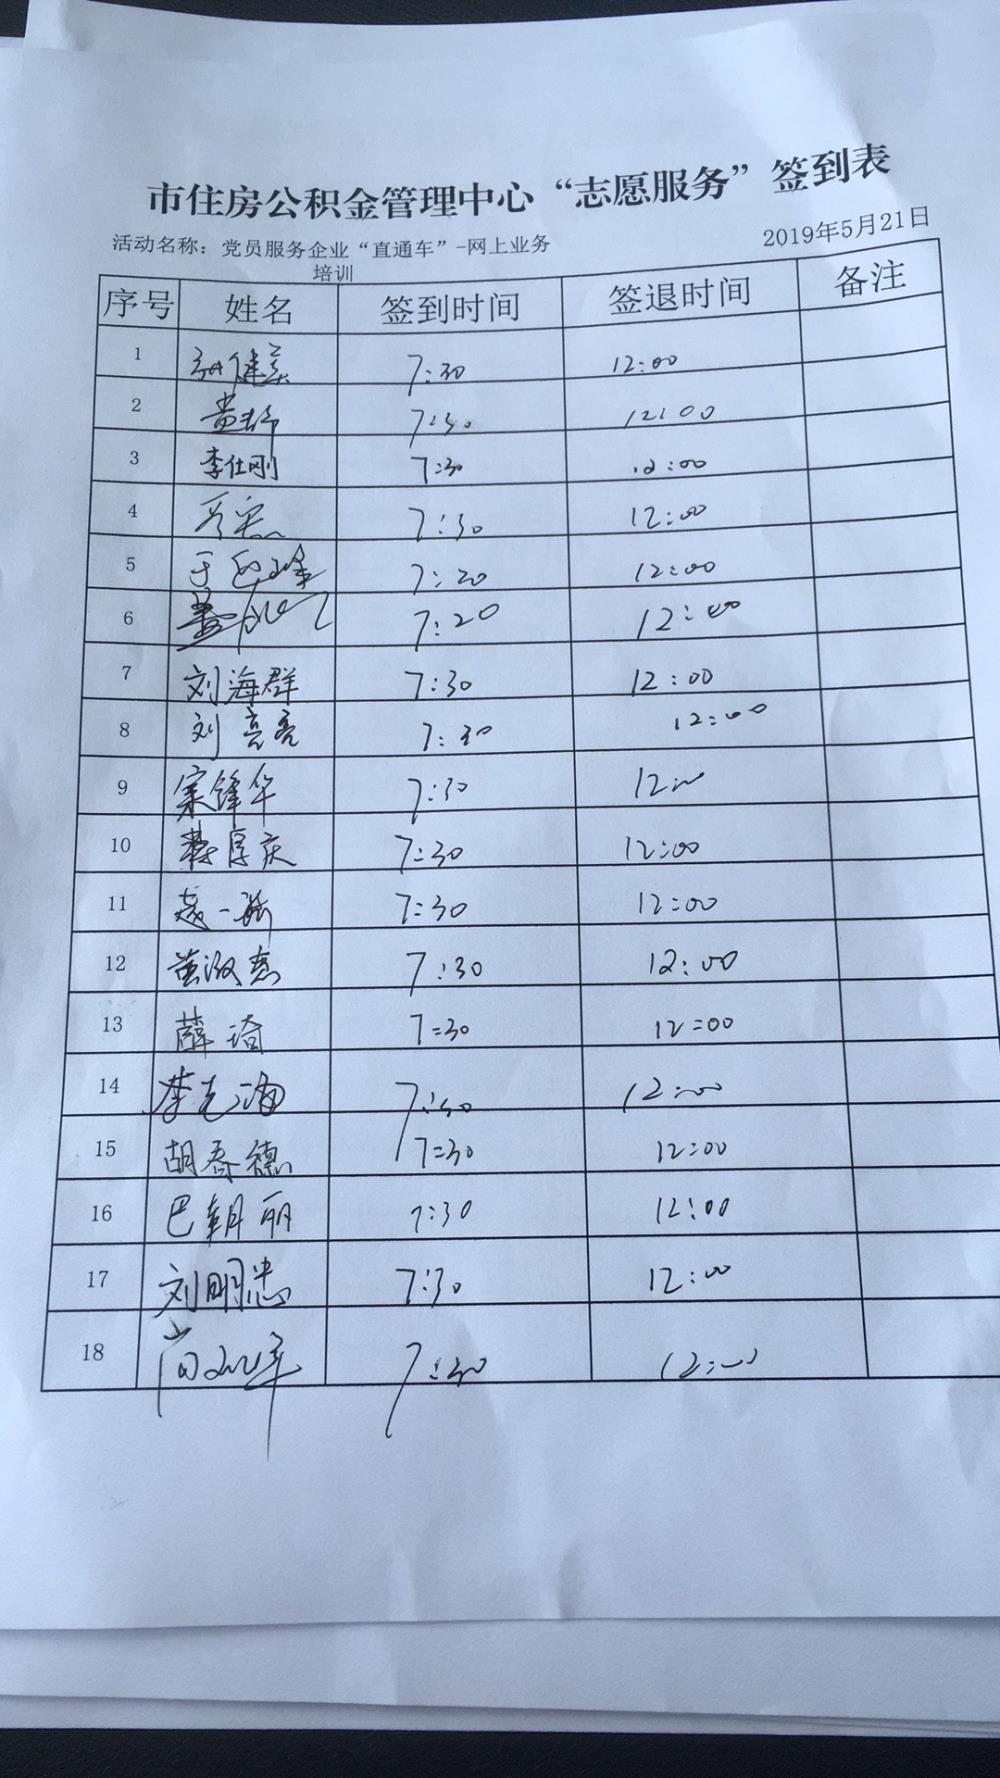 市住房公积金管理中心“志愿服务”签到表
活动名称：党员服务企业“直通车”-网上业务
培训
2019年5月21日
序号 姓名 签到时间 签退时间 备注
1 7:30 12:00
2 7:30 12:00
3 李仕刚 7:30 12:00
4 7:30 12:00
5 7:20 12:00
6 7:20 12:00
7 刘海群 7:30 12:00
8 刘亮亮 7:30 12:00
9 宋锋华 7:30 12:00
10 7:30 12:00
11 7:30 12:00
12 7:30 12:00
13 薛琦 7:30 12:00
14 李克海 7:30 12:00
15 胡春德 7:30 12:00
16 巴朝丽 7:30 12:00
17 刘明忠 7:30 12:00
18 7:30 12:00